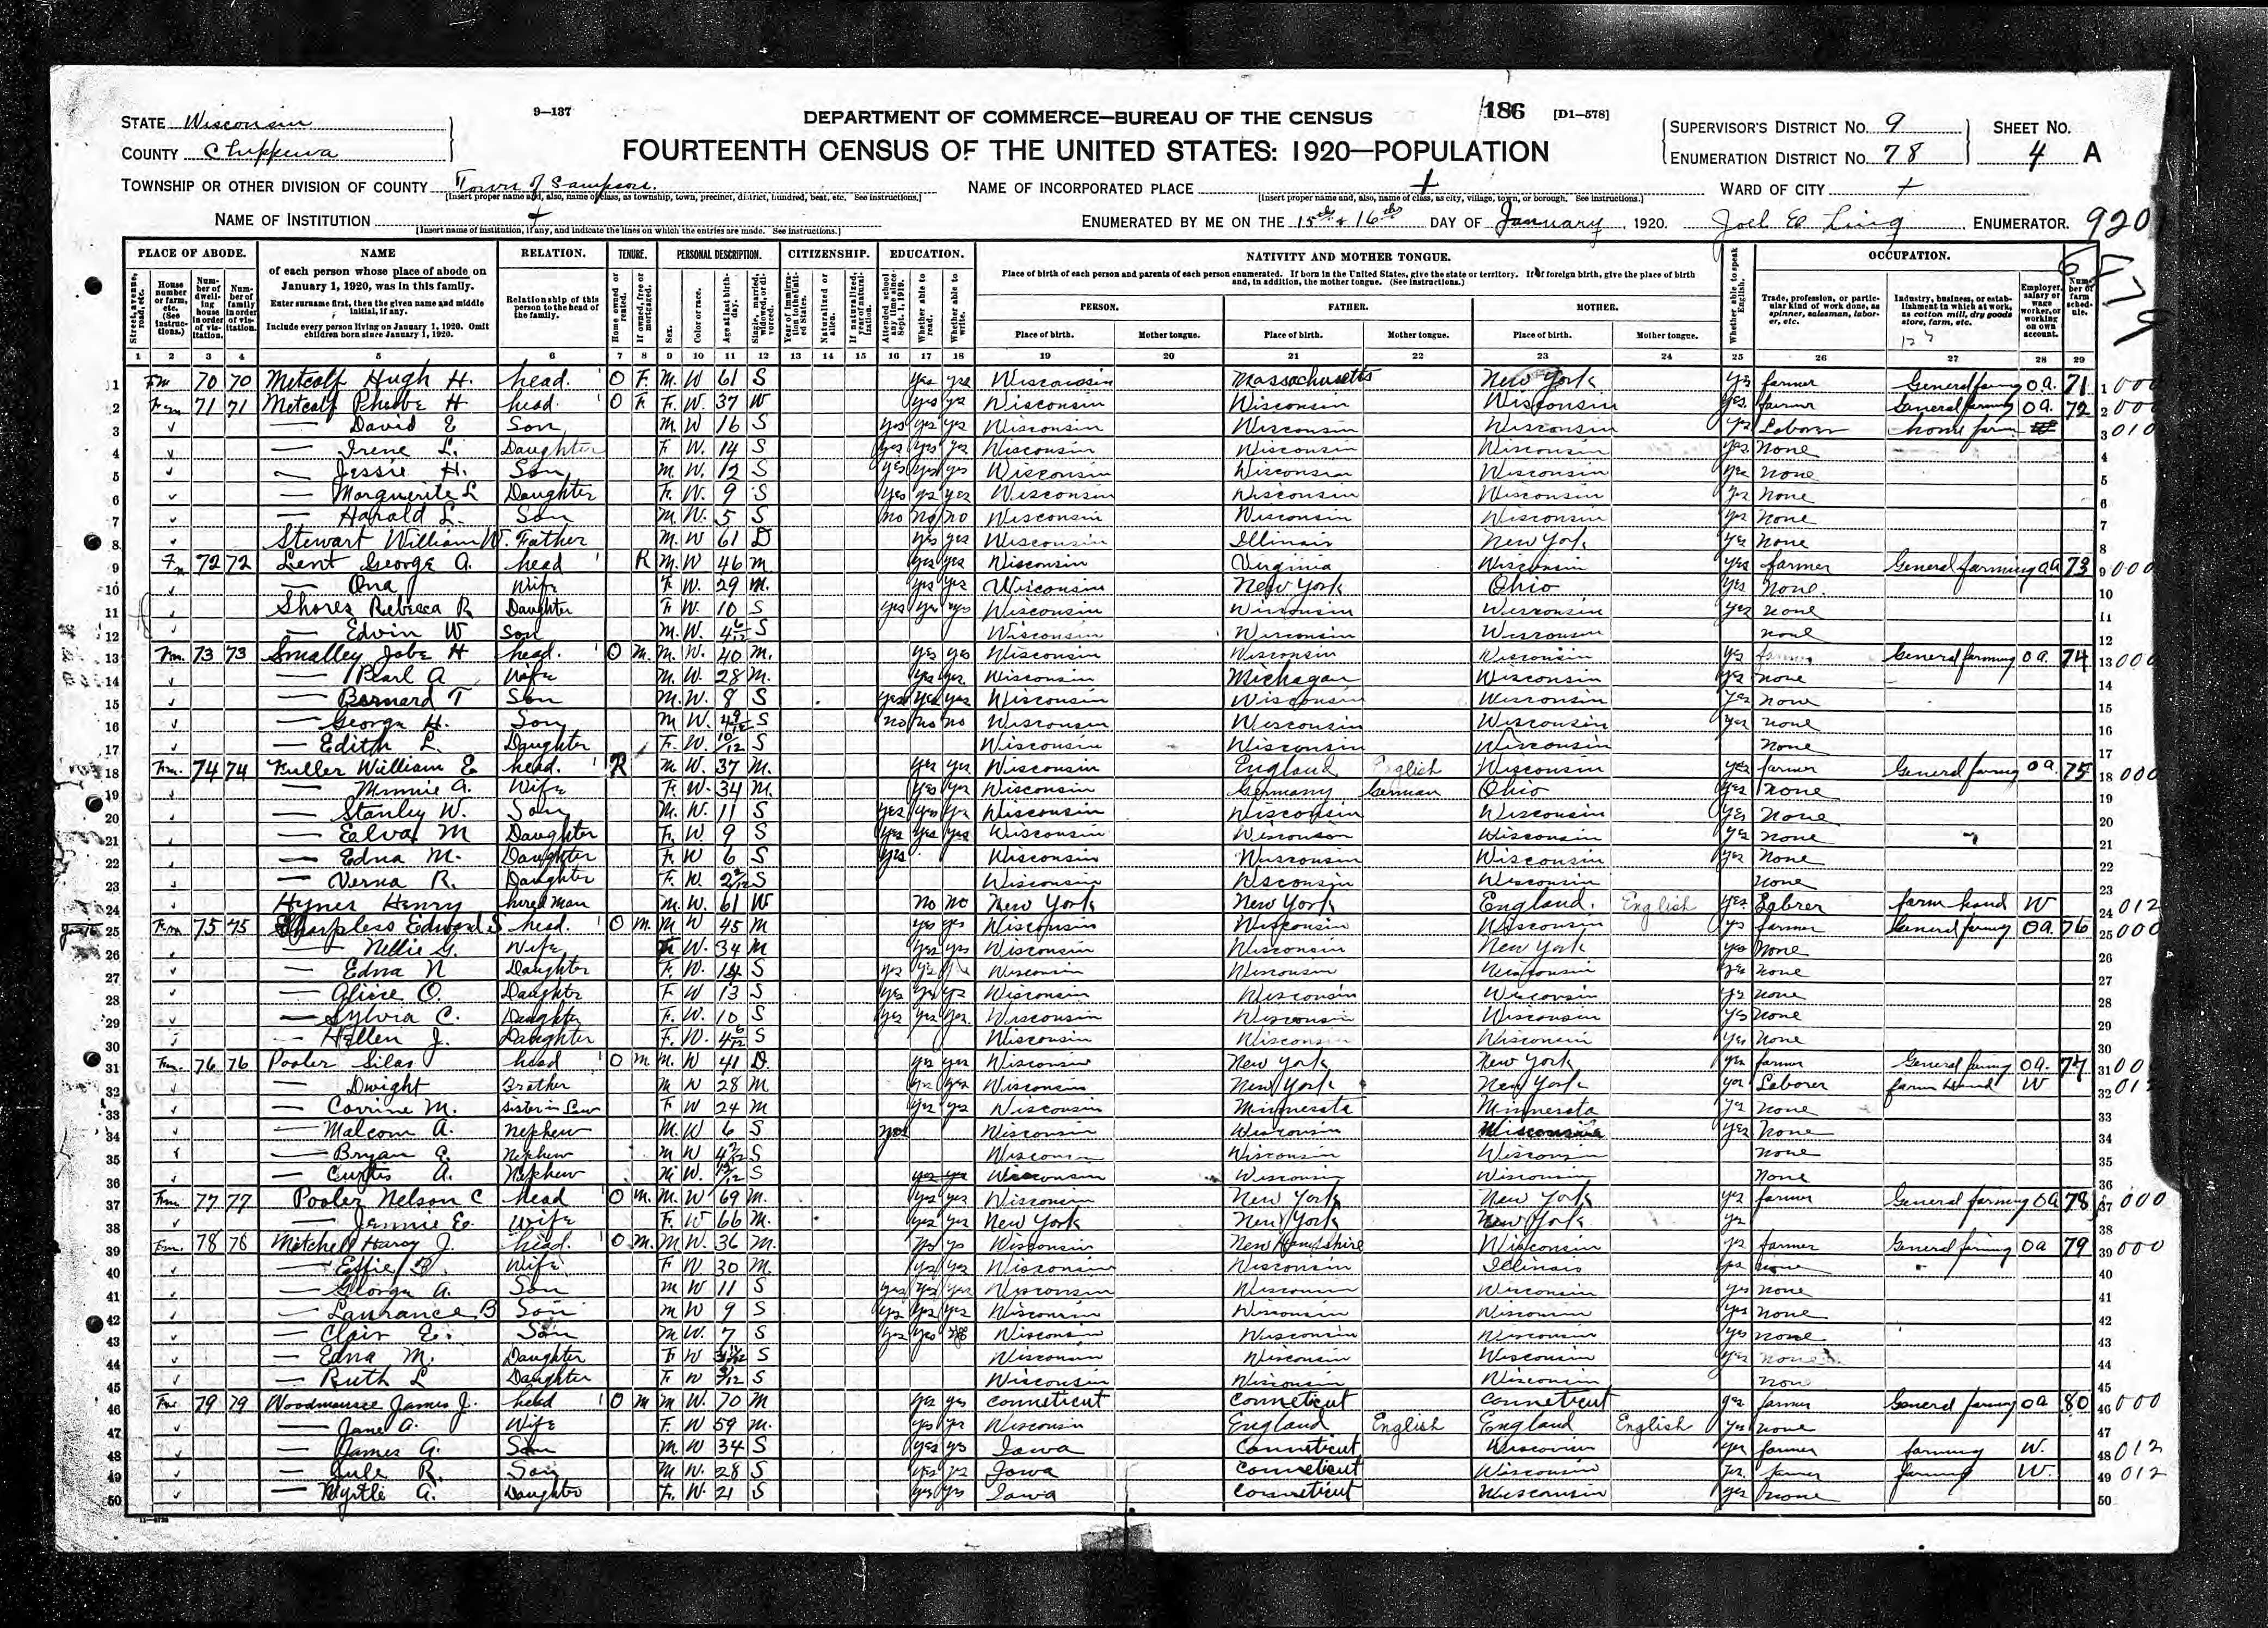 9—137
DEPARTMENT OF COMMERCE—BUREAU OF THE CENSUS
186 [D1—578]
STATE Wisconsin
COUNTY Chippewa
FOURTEENTH CENSUS OF THE UNITED STATES: 1920—POPULATION
SUPERVISOR'S DISTRICT No. 9
ENUMERATION DISTRICT No. 78
SHEET NO. 4 A
TOWNSHIP OR OTHER DIVISION OF COUNTY Town of Sampson.
[Insert proper name and, also, name of class, as township, town, precinct, district, hundred, beat, etc. See instructions.]
NAME OF INCORPORATED PLACE +
[Insert proper name and, also, name of class, as city, village, town, or borough. See instructions.]
WARD OF CITY +
NAME OF INSTITUTION +
[Insert name of institution, if any, and indicate the lines on which the entries are made. See instructions.]
ENUMERATED BY ME ON THE 15th & 16th DAY OF January, 1920. Joel E Ling, ENUMERATOR. 920
PLACE OF ABODE. NAME RELATION. TENURE. PERSONAL DESCRIPTION. CITIZENSHIP. EDUCATION. NATIVITY AND MOTHER TONGUE. OCCUPATION.
1 2 3 4 5 6 7 8 9 10 11 12 13 14 15 16 17 18 19 20 21 22 23 24 25 26 27 28 29
1 Fm 70 70 Metcalf Hugh H. head. O F. M. W 61 S yes yes Wisconsin Massachusetts New York yes farmer General farming O a. 71 1 000
2 Fm 71 71 Metcalf Phebe H head. O F. F. W. 37 W yes ys Wisconsin Wisconsin Wisconsin yes. farmer General farming O a. 72 2 000
3 — David E Son M. W 16 S yes yes yes Wisconsin Wisconsin Wisconsin yes Laborer home farm 3 010
4 — Irene L. Daughter F W. 14 S yes yes yes Wisconsin Wisconsin Wisconsin yes None 4
5 — Jessie H. Son M. W. 12 S yes yes yes Wisconsin Wisconsin Wisconsin yes None 5
6 — Marguerite L Daughter F. W. 9 S yes ys yes Wisconsin Wisconsin Wisconsin yes None 6
7 — Harald L. Son M. W. 5 S no no no Wisconsin Wisconsin Wisconsin yes None 7
8 Stewart William W. Father M. W 61 D yes yes Wisconsin Illinois New York yes None 8
9 Fm 72 72 Lent George A. head R M. W 46 m yes yes Wisconsin Virginia Wisconsin yes farmer General farming O a 73 9 000
10 — Ona Wife F. W. 29 M. yes yes Wisconsin New York Ohio yes None. 10
11 Shores Rebecca R Daughter F W. 10 S yes yes yes Wisconsin Wisconsin Wisconsin yes none 11
12 — Edwin W Son M. W. 4 6/12 S Wisconsin Wisconsin Wisconsin none 12
13 Fm. 73 73 Smalley Jobe H head. O M. M. W. 40 M. yes yes Wisconsin Wisconsin Wisconsin yes farmer General farming O a. 74 13 000
14 — Pearl A Wife M. W. 28 M. yes yes. Wisconsin Michagan Wisconsin yes none 14
15 — Bernard T Son M. W. 8 S yes yes yes Wisconsin Wisconsin Wisconsin yes None 15
16 — George H. Son M W. 4 9/12 S no no no Wisconsin Wisconsin Wisconsin yes none 16
17 — Edith L. Daughter F. W. 10/12 S Wisconsin Wisconsin Wisconsin None 17
18 Fm. 74 74 Fuller William E head. R M W. 37 M. yes yes Wisconsin England English Wisconsin yes farmer General farming O a. 75 18 000
19 — Minnie A. Wife F. W. 34 M. yes yes Wisconsin Germany German Ohio yes None 19
20 — Stanley W. Son M. W. 11 S yes yes yes Wisconsin Wisconsin Wisconsin yes None 20
21 — Ealva M Daughter F. W. 9 S yes yes yes Wisconsin Wisconsin Wisconsin yes none 21
22 — Edna M. Daughter F. W 6 S yes Wisconsin Wisconsin Wisconsin yes None 22
23 — Verna R. Daughter F. W. 2 2/12 S Wisconsin Wisconsin Wisconsin none 23
24 Hynes Henry hired man M. W. 61 W no no New York New York England. English yes. Labrer farm hand W 24 012
25 Fm 75 75 Sharpless Edward S head. O M. M W 45 M yes yes Wisconsin Wisconsin Wisconsin ys farmer General farming O a. 76 25 000
26 — Nellie G. Wife F W. 34 M yes yes Wisconsin Wisconsin New York yes None 26
27 — Edna N Daughter F. W. 14 S yes yes Wisconsin Wisconsin Wisconsin yes none 27
28 — Gliere O. Daughter F W 13 S yes yes ys Wisconsin Wisconsin Wisconsin ys none 28
29 — Sylvia C. Daughter F. W. 10 S yes yes yes. Wisconsin Wisconsin Wisconsin yes none 29
30 — Hellen J. Daughter F. W. 4 6/12 S Wisconsin Wisconsin Wisconsin yes None 30
31 Fm. 76 76 Pooler Silas head O M M. W 41 D. yes yes Wisconsin New York New York yes farmer General farming O a. 77 31 00
32 — Dwight Brother M W 28 M yes yes Wisconsin New York New York yes Laborer farm hand W 32 012
33 — Corrine M. Sister in Law F W 24 M yes yes Wisconsin Minnesota Minnesota yes none 33
34 — Malcom A. Nephew M. W 6 S yes Wisconsin Wisconsin Wisconsin yes None 34
35 — Bryan E. Nephew M W 4 7/12 S Wisconsin Wisconsin Wisconsin none 35
36 — Curtis A. Nephew M W. S yes yes Wisconsin Wisconsin Wisconsin None 36
37 Fm. 77 77 Pooler Nelson C head O M. M. W 69 M. yes yes Wisconsin New York New York yes farmer General farming O a 78 37 000
38 — Jennie E. Wife F. W 66 M. yes yes New York New York New York yes 38
39 Fm. 78 78 Mitchell Harry J. head. O M. M W. 36 M. yes ys Wisconsin New Hampshire Wisconsin yes farmer General farming O a 79 39 000
40 — Effie B. Wife F W 30 M. yes yes Wisconsin Wisconsin Illinois yes none 40
41 — George A. Son M W 11 S yes yes yes Wisconsin Wisconsin Wisconsin yes none 41
42 — Laurance B Son M W 9 S yes yes yes Wisconsin Wisconsin Wisconsin yes none 42
43 — Clair E. Son M W. 7 S yes yes Wisconsin Wisconsin Wisconsin yes none 43
44 — Edna M. Daughter F W 3 11/12 S Wisconsin Wisconsin Wisconsin yes none 44
45 — Ruth L Daughter F W S Wisconsin Wisconsin Wisconsin none 45
46 Fm. 79 79 Woodmansee James J. head O M M W. 70 M yes yes Connecticut Connecticut Connecticut yes farmer General farming O a 80 46 000
47 — Jane A. Wife F. W 59 M. yes yes Wisconsin England English England English yes none 47
48 — James G. Son M. W 34 S yes ys Iowa Connecticut Wisconsin yes farmer farming W. 48 012
49 — Jule R. Son M W. 28 S yes yes Iowa Connecticut Wisconsin yes. farmer farming W. 49 012
50 — Myrtle A. Daughter F. W. 21 S yes yes Iowa Connecticut Wisconsin yes none 50